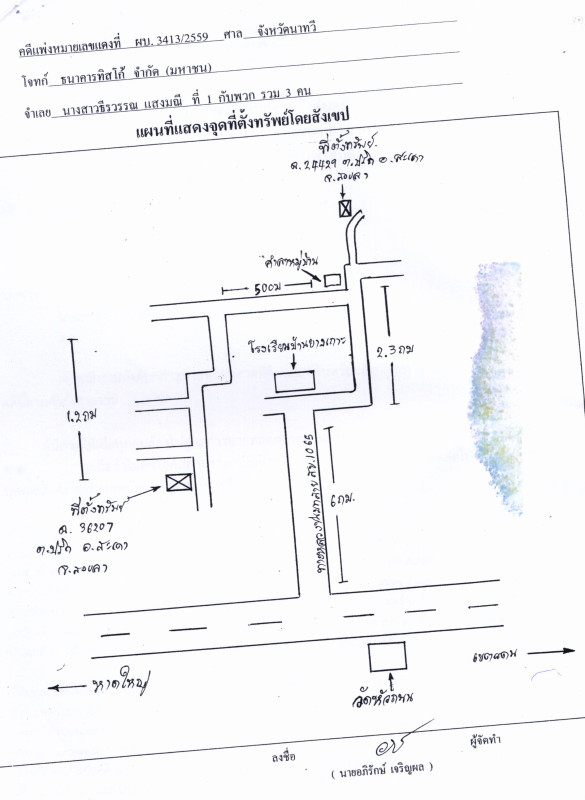 คดีแพ่งหมายเลขแดงที่ ผบ. 3413/2559 ศาล จังหวัดนาทวี
โจทก์ ธนาคารทิสโก้ จำกัด (มหาชน)
จำเลย นางสาวธีรวรรณ แสงมณี ที่ 1 กับพวก รวม 3 คน
แผนที่แสดงจุดที่ตั้งทรัพย์โดยสังเขป
ที่ตั้งทรัพย์
ฉ.24429 ต.ปริก อ.สะเดา
จ.สงขลา
ศาลาหมู่บ้าน
500ม
โรงเรียนบ้านยางเกาะ
2.3 กม
1.2 กม
ที่ตั้งทรัพย์
ฉ. 36207
ต.ปริก อ.สะเดา
จ.สงขลา
ทางหลวงหมายเลข สข.1065
6 กม.
หาดใหญ่
วัดหัวถนน
ลงชื่อ
ผู้จัดทำ
( นายอภิรักษ์ เจริญผล )